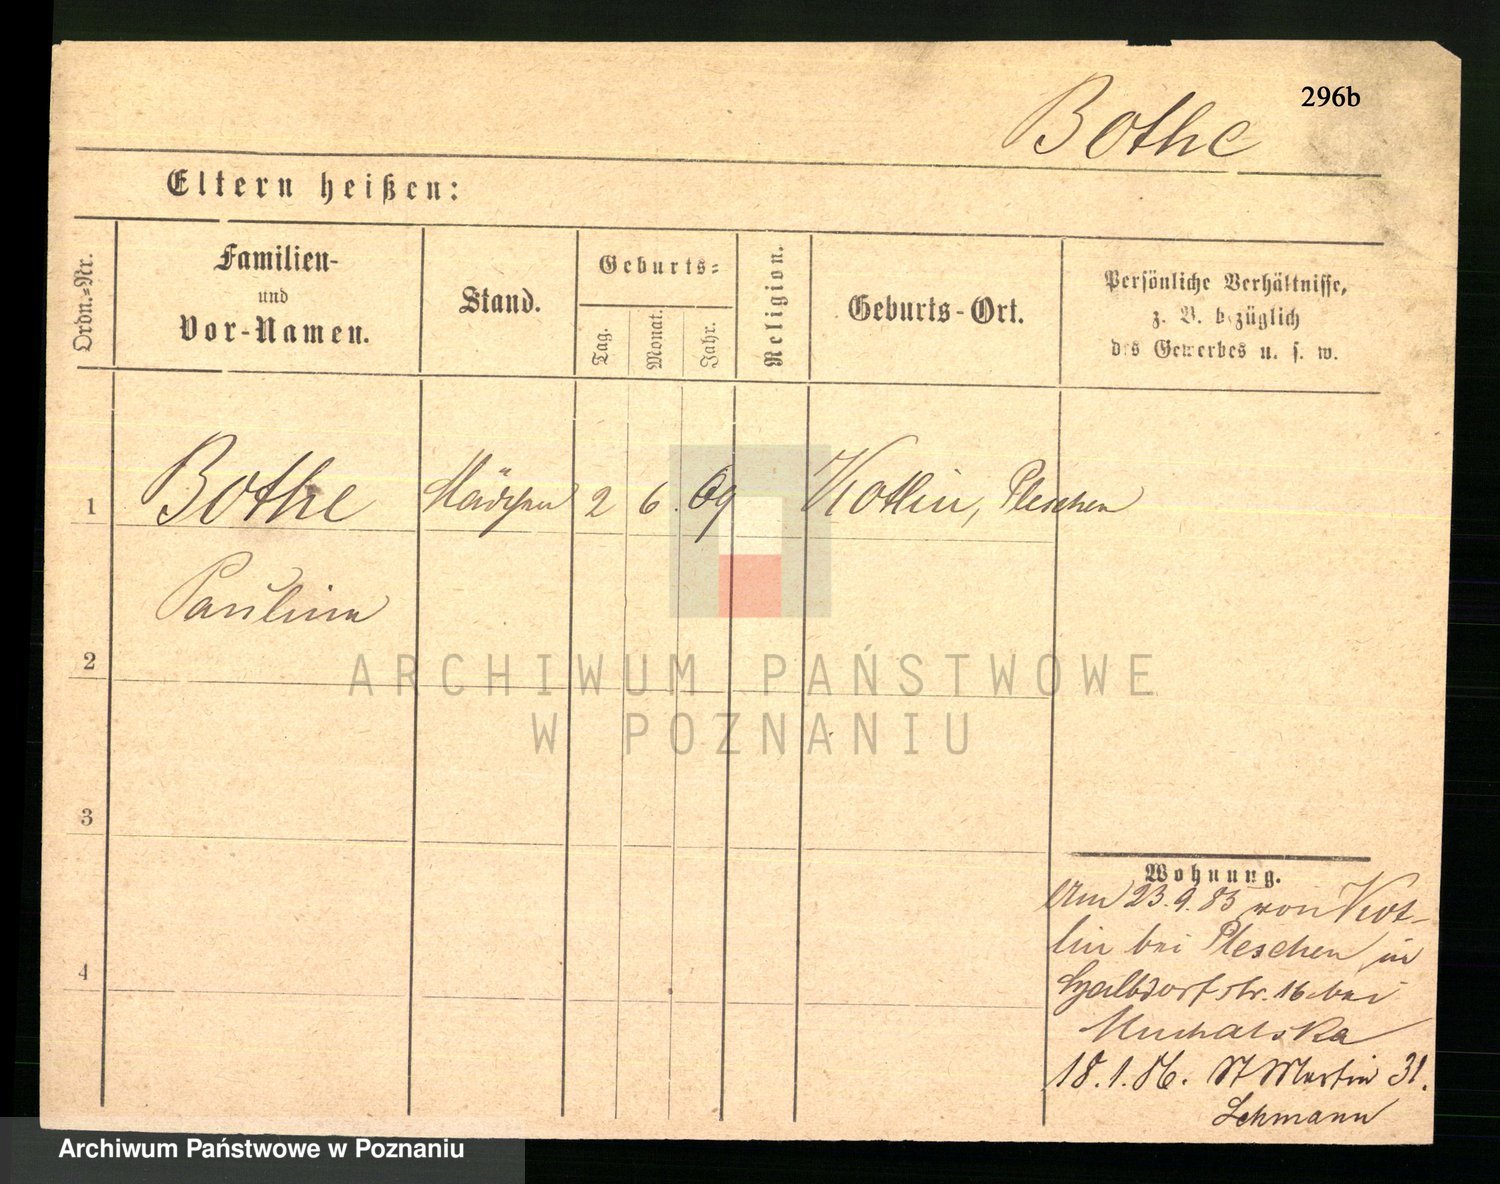 296b
Bothe
Eltern heißen:
Ordn.-Nr.
Familien-
und
Vor-Namen.
Stand.
Geburts-
Tag.
Monat.
Jahr.
Religion.
Geburts-Ort.
Persönliche Verhältnisse,
z. B. bezüglich
des Gewerbes u. s. w.
1 Bothe Mädchen 2 6. 69 Kotlin, Pleschen
Paulina
2
3
4
Wohnung.
Am 23.9.85 von Kot-
lin bei Pleschen in
Halbdorfstr. 16 bei
Muchalska
18.1.86. St Martin 31.
Lehmann
ARCHIWUM PAŃSTWOWE
W POZNANIU
Archiwum Państwowe w Poznaniu